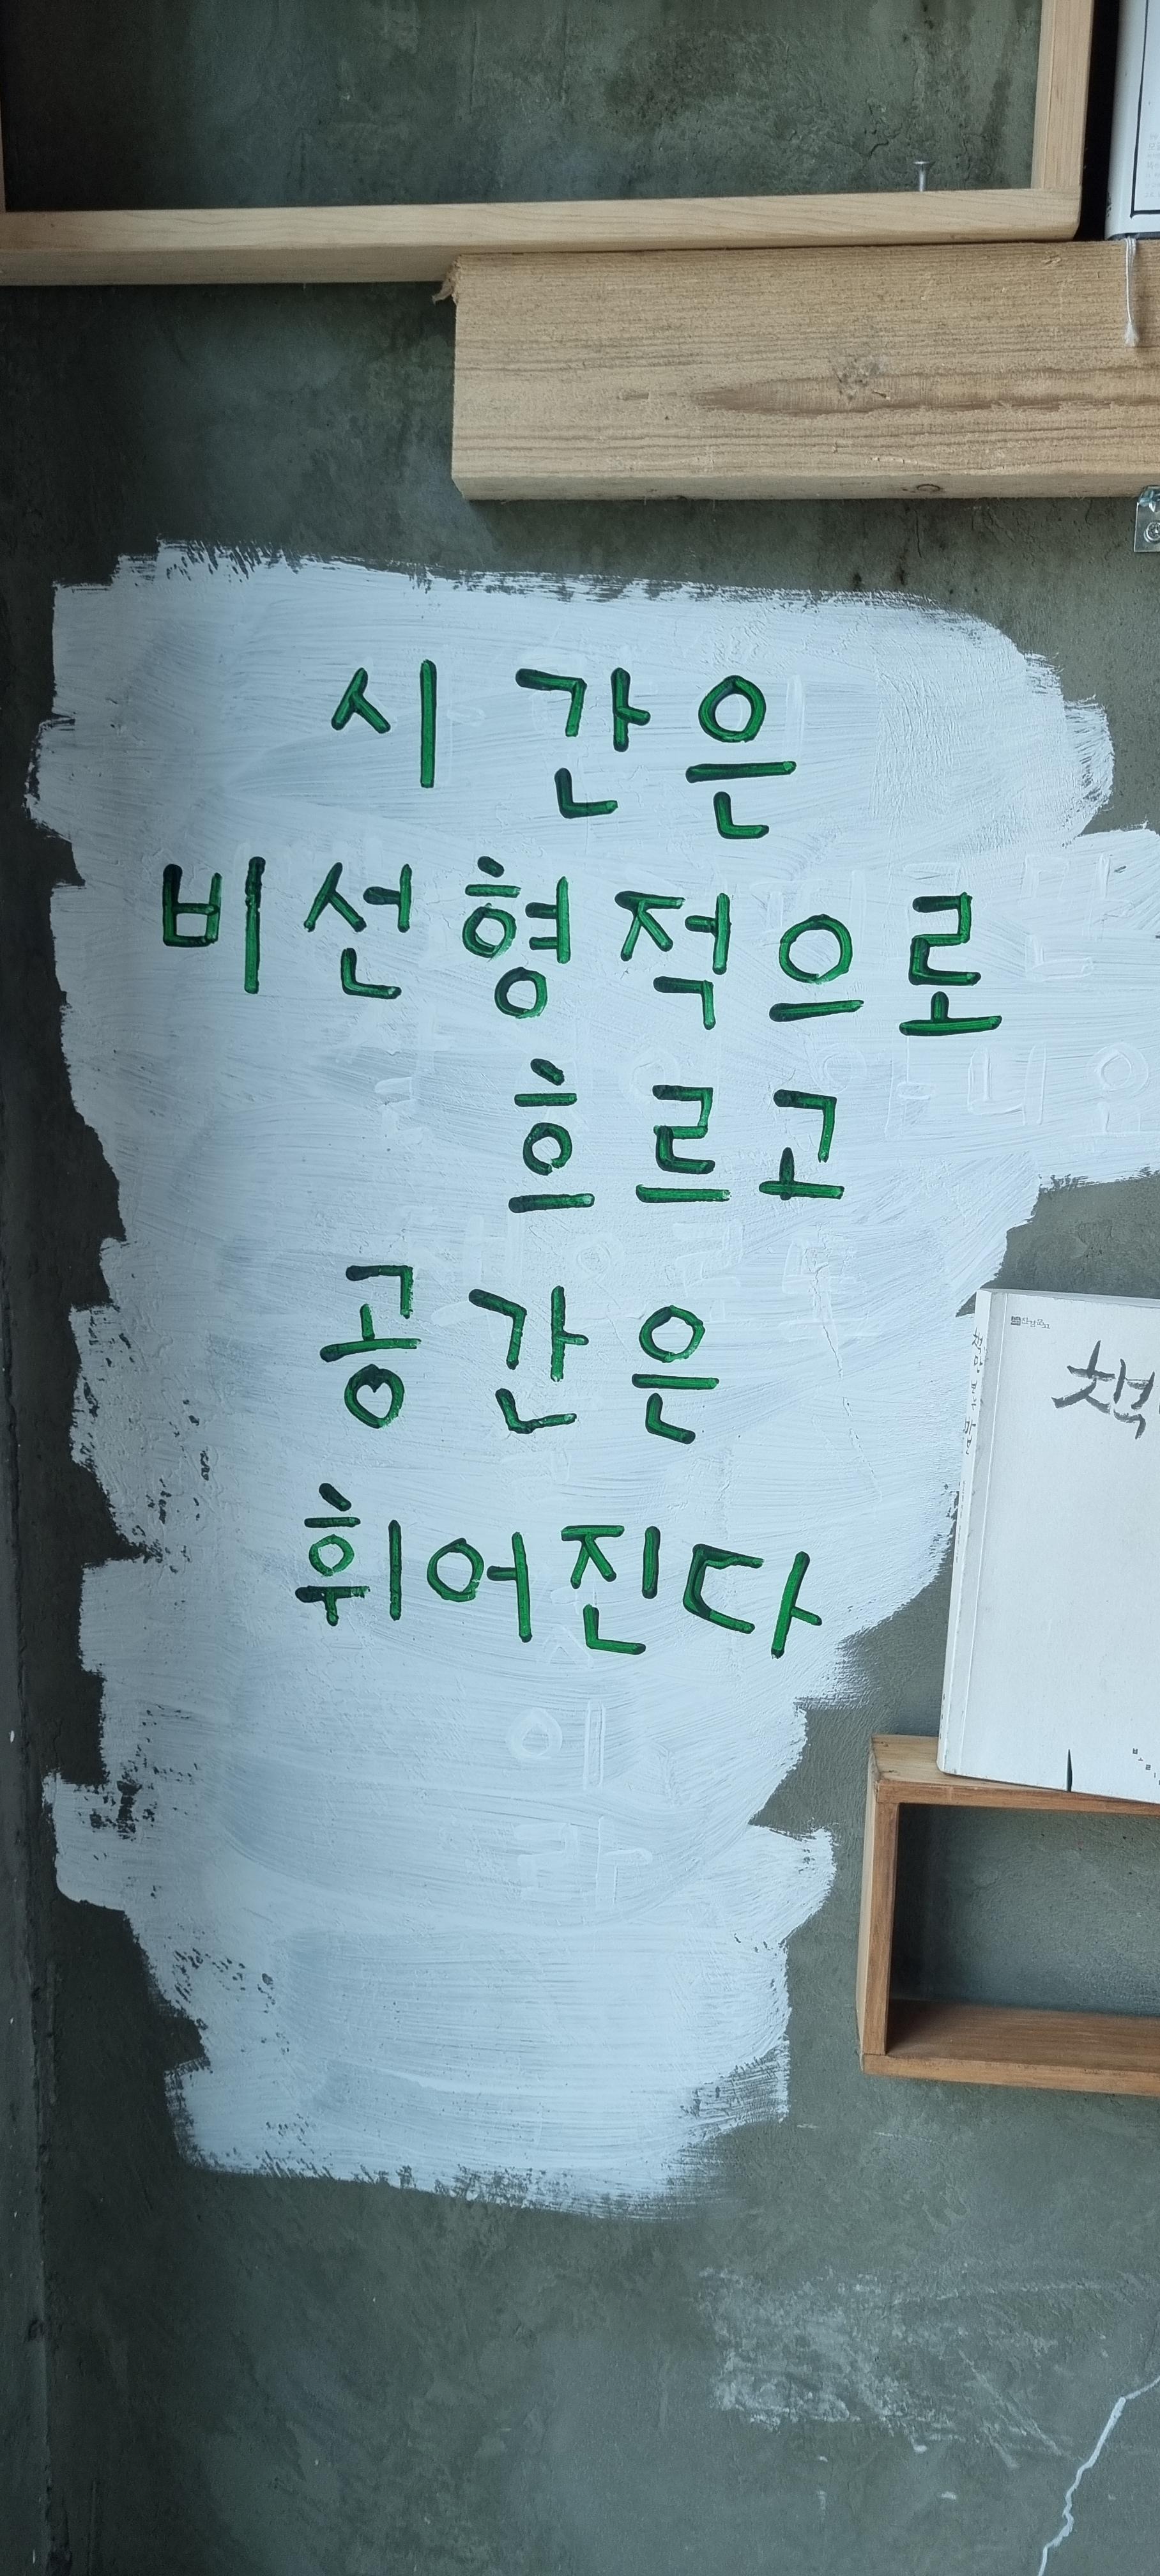 시간은
비선형적으로
흐르고
공간은
휘어진다
책